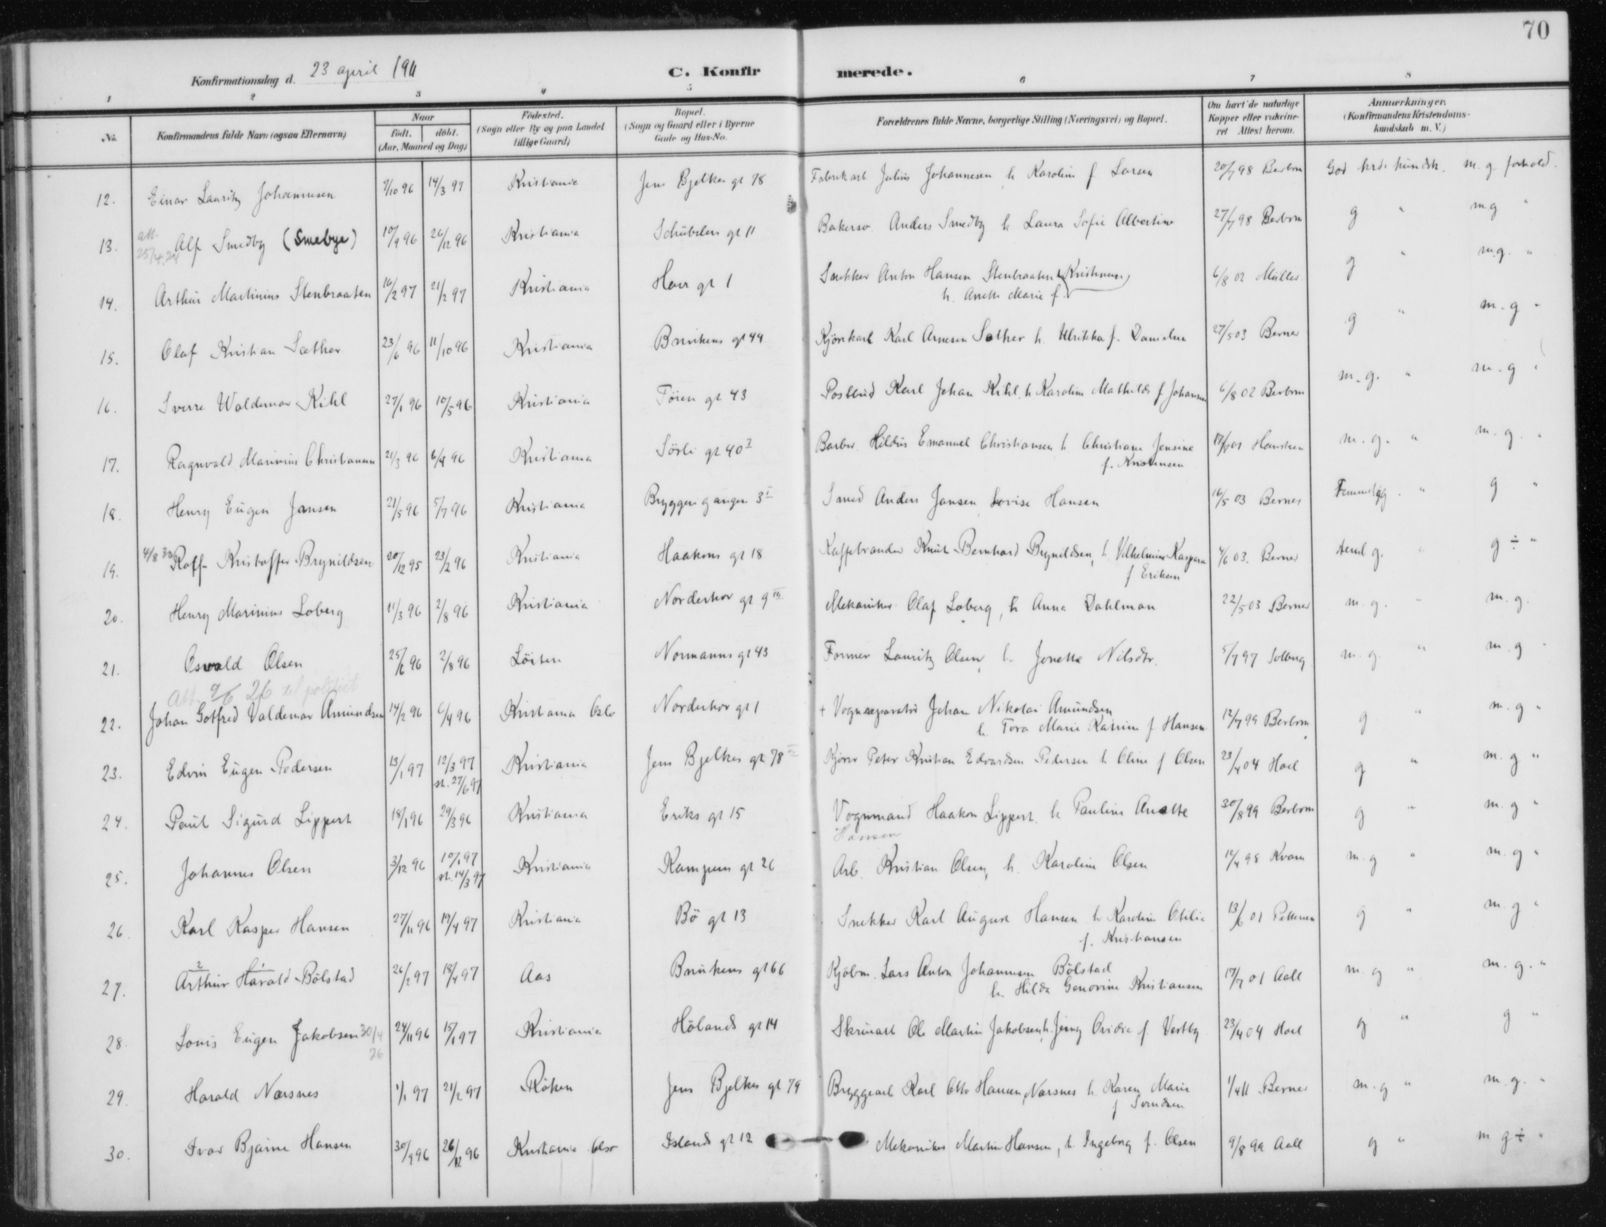 70
Konfirmationsdag d. 23 april 1911 C. Konfirmerede.
1 2 3 4 5 6 7 8
No. Konfirmandens fulde Navn (ogsaa Efternavn) Naar født. døbt. (Aar, Maaned og Dag) Fødested. (Sogn eller By og paa Landet tillige Gaard) Bopæl. (Sogn og Gaard eller i Byerne Gade og Hus-No. Forældrenes fulde Navne, borgerlige Stilling (Næringsvei) og Bopæl. Om havt de naturlige Kopper eller vaccineret Attest herom. Anmærkninger. (Konfirmandens Kristendomskundskab m. V.)
12. Einar Lauritz Johannesen 7/10 96 14/3 97 Kristiania Jens Bjelkes gt 78 Fabrikarb Julius Johannesen h Karoline f Larsen 20/7 98 Berbom God krds kundsk. m. g. forhold.
13. Alf Smedby (Smebye) 10/9 96 26/12 96 Kristiania Schübelers gt 11 Bakersv Anders Smedby h Laura Sofie Albertine 27/7 98 Berbom g " m g "
14. Arthur Martinius Stenbraaten 16/2 97 21/2 97 Kristiania Hovs gt 1 Snekker Anton Hansen Stenbraaten
h. Anette Marie f. 6/8 02 Müller g " m.g. "
15. Olaf Kristian Sæther 23/6 96 11/10 96 Kristiania Brinkens gt 44 Kjørekarl Karl Arnesen Sæther h. Ulrikka f. Danielsen 27/5 03 Berner g " m. g "
16. Sverre Waldemar Kihl 27/1 96 10/5 96 Kristiania Tøien gt 43 Postbud Karl Johan Kihl, h Karoline Mathilde f Johansen 6/8 02 Berbom m. g. " m. g "
17. Ragnvald Marinius Christiansen 21/3 96 6/4 96 Kristiania Sørli gt 40 Barber Hildus Emanuel Christiansen h Christiane Jensine
f. Kristensen m. g. " m. g. "
18. Henry Eugen Jansen 21/5 96 5/7 96 Kristiania Bryggerigangen 3 Smed Anders Jansen Lovise Hansen 16/5 03 Berner g "
19. Rolf Kristoffer Brynildsen 20/12 95 23/2 96 Kristiania Haakons gt 18 Kaffebrænder Knut Bernhard Brynildsen, h Vilhelmine Kaspara
f Eriksen 4/6 03. Berner temel g. " g ÷ "
20. Henry Marinius Løberg 11/3 96 2/8 96 Kristiania Norderhov gt 9 Mekaniker Olaf Løberg, h Anna Dahlman 22/5 03 Berner m. g. " m. g.
21. Osvald Olsen 25/6 96 2/8 96 Løiten Normanns gt 43 Former Lauritz Olsen, h. Jonette Nilsdtr. 5/7 97 Solberg m. g. " m. g "
Att 9/6 26 til politiet
22. Johan Gotfred Valdemar Amundsen 14/2 96 6/4 96 Kristiania Oslo Norderhov gt 1 + Vognreparatør Johan Nikolai Amundsen
h. Tora Marie Katrine f Hansen 12/7 99 Berbom g " m. g "
23. Edvin Eugen Pedersen 13/1 97 12/3 97
st. 27/6 97 Kristiania Jens Bjelkes gt 78 Kjørsv Peter Kristian Edvardsen Pedersen h Oline f Olsen 23/4 04 Hoel g " m. g "
24. Paul Sigurd Lippert 18/1 96 29/3 96 Kristiania Eriks gt 15 Vognmand Haakon Lippert h Pauline Anette
Hansen 30/8 99 Berbom g " m. g "
25. Johannes Olsen 3/12 96 10/1 97
st. 14/3 97 Kristiania Kampens gt 26 Arb. Kristian Olsen, h. Karoline Olsen 19/4 98 Kvam m. g " m. g "
26. Karl Kasper Hansen 27/11 96 19/4 97 Kristiania Bø gt 13 Snekker Karl August Hansen h Karoline Otilie
f. Kristiansen 13/6 01 Pettersen g " m. g "
27. Arthur Harald Bølstad 26/2 97 18/4 97 Aas Brinkens gt 66 Kjøbm. Lars Anton Johannesen Bølstad
h. Hilda Genovine Kristiansen 17/7 01 Aall m. g " m. g. "
28. Louis Eugen Jakobsen 30/4 26 24/11 96 15/1 97 Kristiania Hølands gt 14 Skrædarb Ole Martin Jakobsen, h. Jenny Ovidia f Vestby 23/4 04 Hoel g " g "
29. Harald Nærsnes 1/1 97 21/2 97 Røken Jens Bjelkes gt 79 Bryggearb Karl Otto Hansen Nærsnes h Karen Marie
f Svendsen 1/4 11 Berner m. g " m. g. "
30. Ivar Bjarne Hansen 30/9 96 26/12 96 Kristiania Oslo Islands gt 12 Mekaniker Martin Hansen, h Ingeborg f. Olsen 9/8 99 Aall g " m g ÷ "